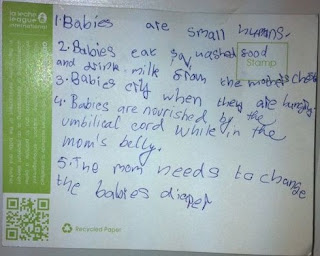 la leche
league
international
1. Babies are small humans.
2. Babies eat food
and drink milk from the mom's
3. Babies cry when they are hungry.
4. Babies are nourished by the
umbilical cord while in the
mom's belly.
5. The mom needs to change
the babies diaper
Stamp
Recycled Paper